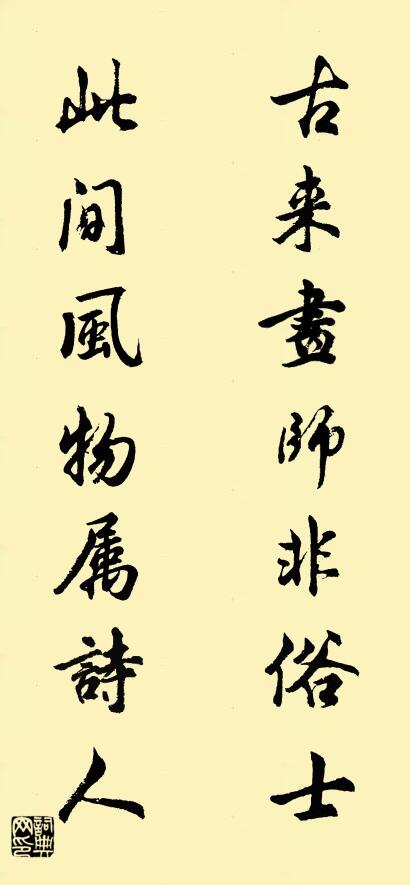 古来畫師非俗士
此间風物属詩人
詞典网印